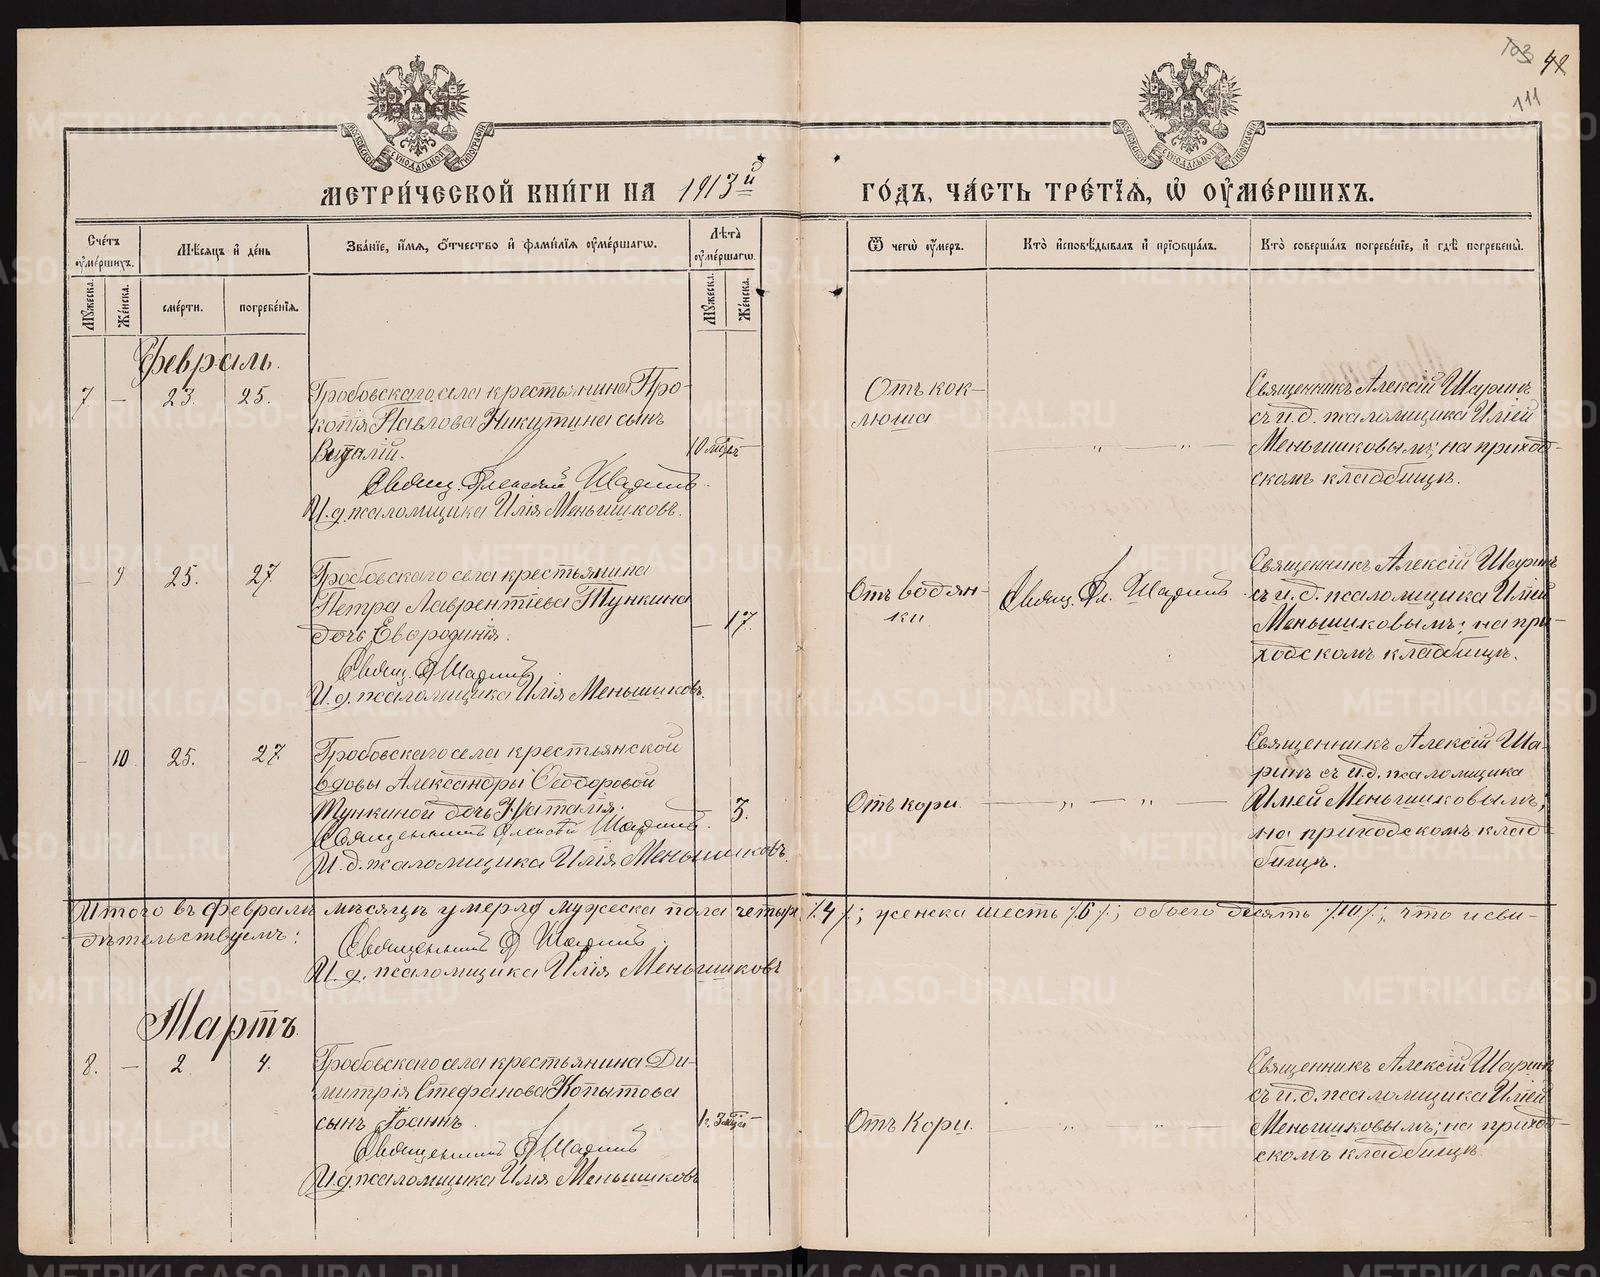 103 42
111
МОСКОВСКОЙ СѴНОДАЛЬНОЙ ТИПОГРАФІИ
МОСКОВСКОЙ СѴНОДАЛЬНОЙ ТИПОГРАФІИ
МЕТРИ́ЧЕСКОЙ КНИ́ГИ НА 1913й
ГО́ДЪ, ЧА́СТЬ ТРЕ́ТІѦ, Ѽ ОУ҆МЕ́РШИХЪ.
Сче́тъ оу҆ме́ршихъ.
Мѣ́сѧцъ и҆ де́нь
Зва́нїе, и҆́мѧ, ѻ҆́тчество и҆ фами́лїѧ оу҆ме́ршагѡ.
Лѣ́та̀ оу҆ме́ршагѡ.
Ѿ чегѡ̀ оу҆́меръ.
Кто̀ и҆сповѣ́дывалъ и҆ прїѡбща́лъ.
Кто̀ соверша́лъ погребе́нїе, и҆ гдѣ̀ погребены̀.
Мꙋ́жеска. Же́нска.
сме́рти.
погребе́нїѧ.
Мꙋ́жеска. Же́нска.
Февраль.
7. — 23. 25.
Гробовскаго села крестьянина Про-
копія Павлова Никитина сынъ
Виталій.
Свящ. Алексій Шаринъ.
И. д. псаломщика Илія Меньшиковъ.
10 мѣс. —
Отъ кок-
люша
— „ — „ —
Священникъ Алексій Шаринъ
съ и. д. псаломщика Иліей
Меньшиковымъ; на приход-
скомъ кладбищѣ.
— 9 25. 27
Гробовскаго села крестьянина
Петра Лаврентіева Тункина
дочь Евфродинія.
Свящ. А Шаринъ.
И. д. псаломщика Илія Меньшиковъ.
— 17.
Отъ водян-
ки
Свящ. Ал. Шаринъ.
Священникъ Алексій Шаринъ
съ и. д. псаломщика Иліей
Меньшиковымъ; на при-
ходскомъ кладбищѣ.
— 10 25. 27.
Гробовскаго села крестьянской
вдовы Александры Ѳеодоровой
Тункиной дочь Наталія.
Священникъ Алексій Шаринъ.
И. д. псаломщика Илія Меньшиковъ.
3.
Отъ кори.
— „ — „ —
Священникъ Алексій Ша-
ринъ съ и. д. псаломщика
Иліей Меньшиковымъ;
на приходскомъ клад-
бищѣ.
Итого въ февралѣ мѣсяцѣ умерло мужеска пола четыре /.4/.; женска шесть /.6/.; обоего десять /.10/.; что и сви-
дѣтельствуемъ:
Священникъ А Шаринъ.
И. д. псаломщика Илія Меньшиковъ
Мартъ.
8. — 2 4.
Гробовскаго села крестьянина Ди-
митрія Стефанова Копытова
сынъ Іоаннъ.
Священникъ А Шаринъ
И. д. псаломщика Илія Меньшиковъ
1 г. 3 мѣс. —
Отъ Кори.
— „ — „ —
Священникъ Алексій Шаринъ
съ и. д. псаломщика Иліей
Меньшиковымъ; на приход-
скомъ кладбищѣ.
METRIKI.GASO-URAL.RU